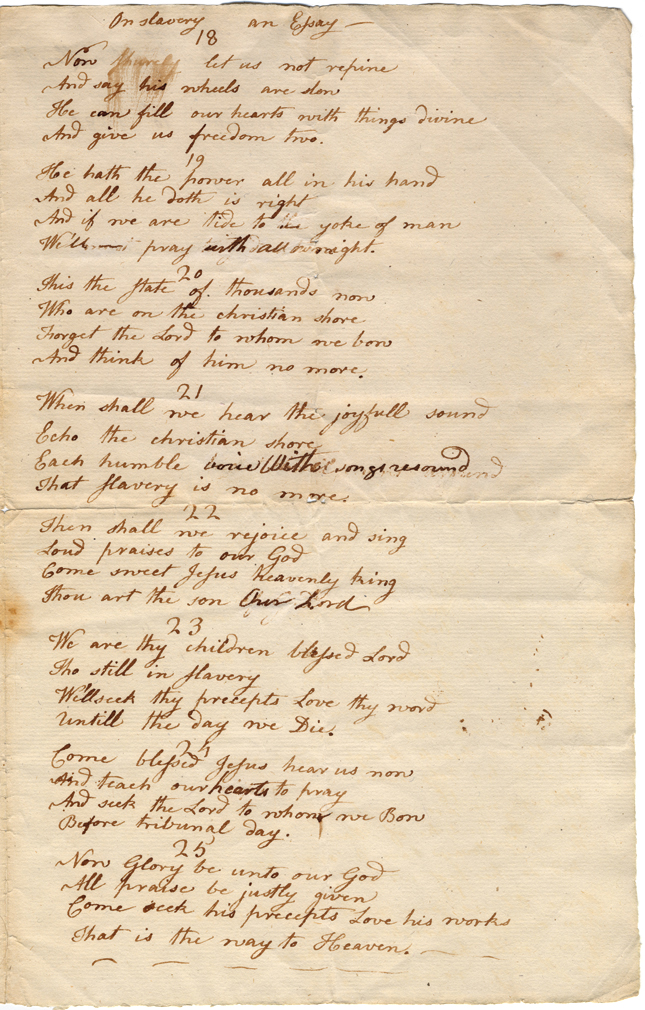 On slavery an Essay —
18
Now shurely let us not repine
And say his wheels are slow
He can fill our hearts with things divine
And give us freedom two.
19
He hath the power all in his hand
And all he doth is right
And if we are tide to the yoke of man
We'll pray with all our might.
20
This the state of thousands now
Who are on the christian shore
Forget the Lord to whom we bow
And think of him no more.
21
When shall we hear the joyfull sound
Echo the christian shore
Each humble voice With songs resound
That slavery is no more.
22
Then shall we rejoice and sing
Loud praises to our God
Come sweet Jesus heavenly king
Thou art the son Our Lord
23
We are thy children blessed Lord
Tho still in slavery
We'll seek thy precepts Love thy word
Untill the day we Die.
24
Come blessed Jesus hear us now
And teach our hearts to pray
And seek the Lord to whom we Bow
Before tribunal day.
25
Now Glory be unto our God
All praise be justly given
Come seek his precepts Love his works
That is the way to Heaven.